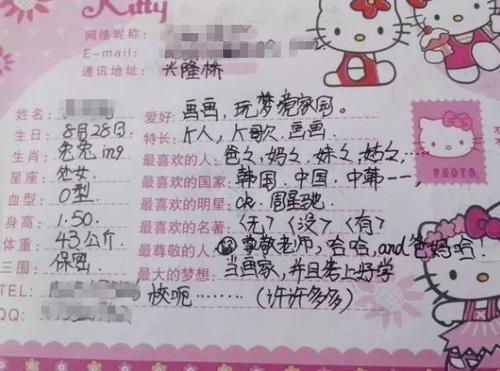 Kitty
网络昵称:
E-mail:
通讯地址: 兴隆桥
姓名: 爱好: 画画,玩梦龙家园。
生日: 8月28日 特长: 个人,个歌、画画
生肖: 兔兔ing 最喜欢的人: 爸々,妈々,妹々,姑々……
星座: 处女 最喜欢的国家: 韩国.中国.中韩一一,
血型: O型 最喜欢的明星: ck.周星驰.
身高: 1.50 最喜欢的名著: 〈无〉〈没〉〈有〉
体重: 43公斤 最尊敬的人: 尊敬老师,哈哈,and爸妈哈!
三围: 保密 最大的梦想: 当画家,并且考上好学
TEL: 校呃……… (许许多多)
QQ:
PHOTO